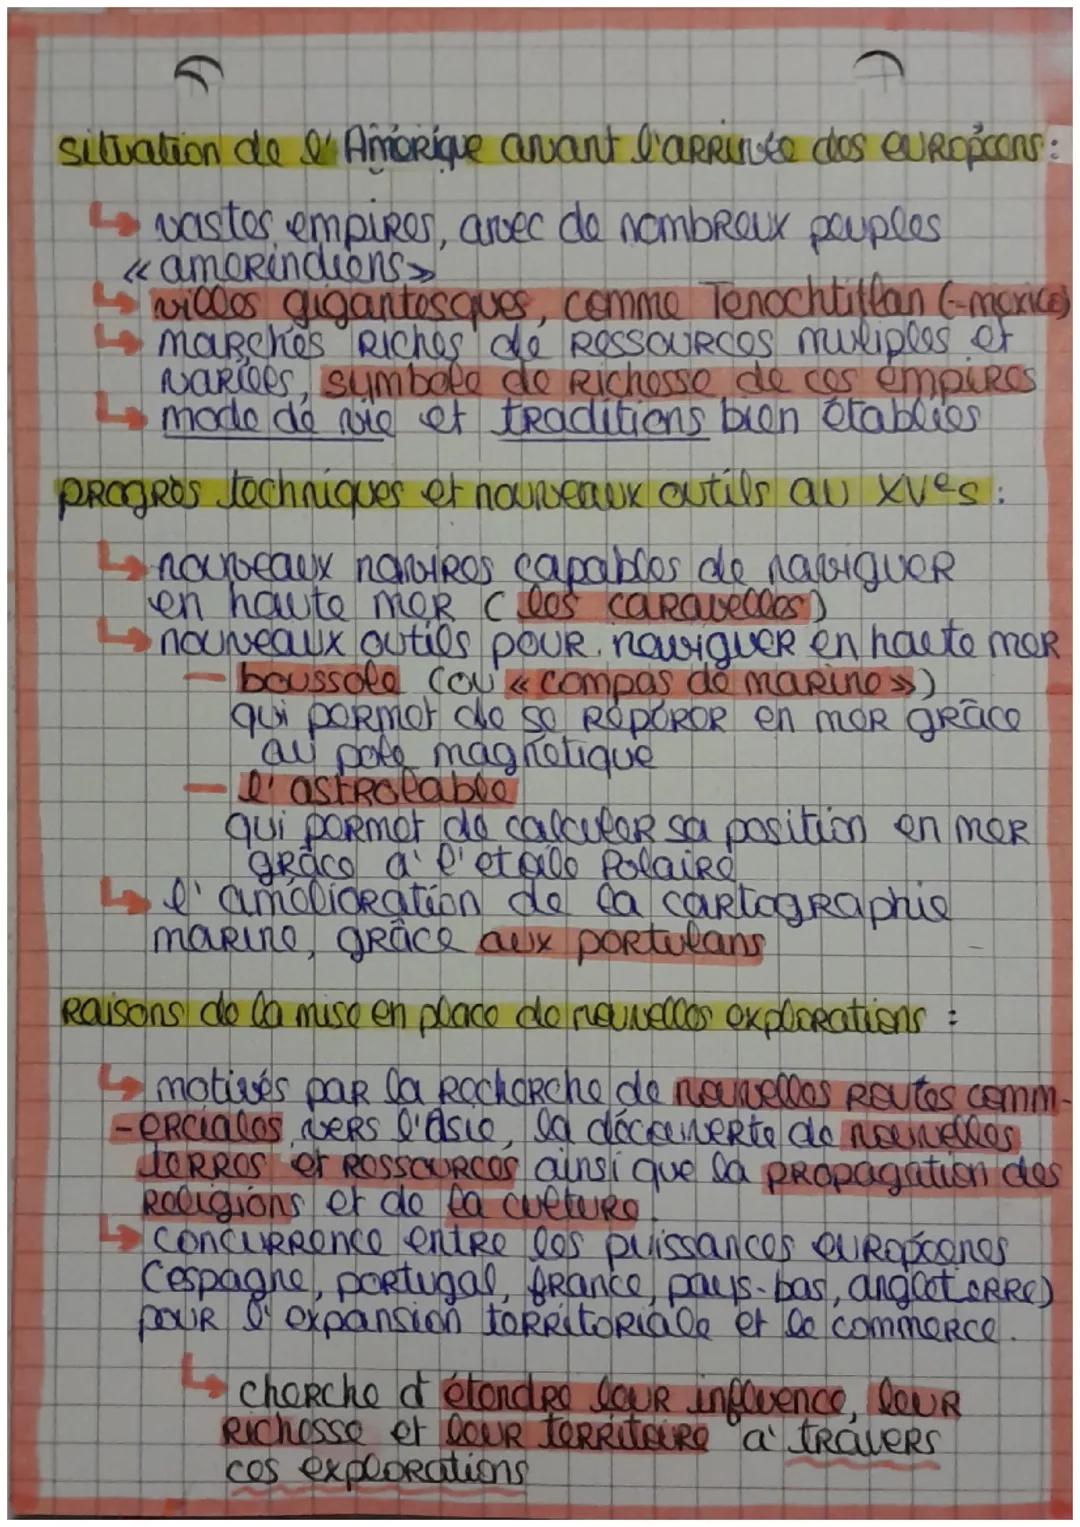 situation de l'Amérique avant l'arrivée des européens :
↳ vastes empires, avec de nombreux peuples
« amerindiens »
↳ villes gigantesques, comme Tenochtitlan (-mexico)
↳ marchés riches de ressources muliples et
variées, symbole de richesse de ces empires
↳ mode de vie et traditions bien établies
progrès techniques et nouveaux outils au XVes :
↳ nouveaux navires capables de naviguer
en haute mer (les caravelles)
↳ nouveaux outils pour naviguer en haute mer
— boussole (ou « compas de marine »)
qui permet de se repérer en mer grâce
au pole magnétique
— l'astrolable
qui permet de calculer sa position en mer
grâce a' l'etoile Polaire
↳ l'amélioration de la cartographie
marine, grâce aux portulans
Raisons de la mise en place de nouvelles explorations :
↳ motivés par la recherche de nouvelles routes comm-
-erciales vers l'Asie, la découverte de nouvelles
terres et ressources ainsi que la propagation des
religions et de la culture.
↳ concurrence entre les puissances européenes
(espagne, portugal, france, pays-bas, angleterre)
pour l'expansion territoriale et le commerce.
↳ cherche d'étendre leur influence, leur
richesse et leur territoire a' travers
ces explorations